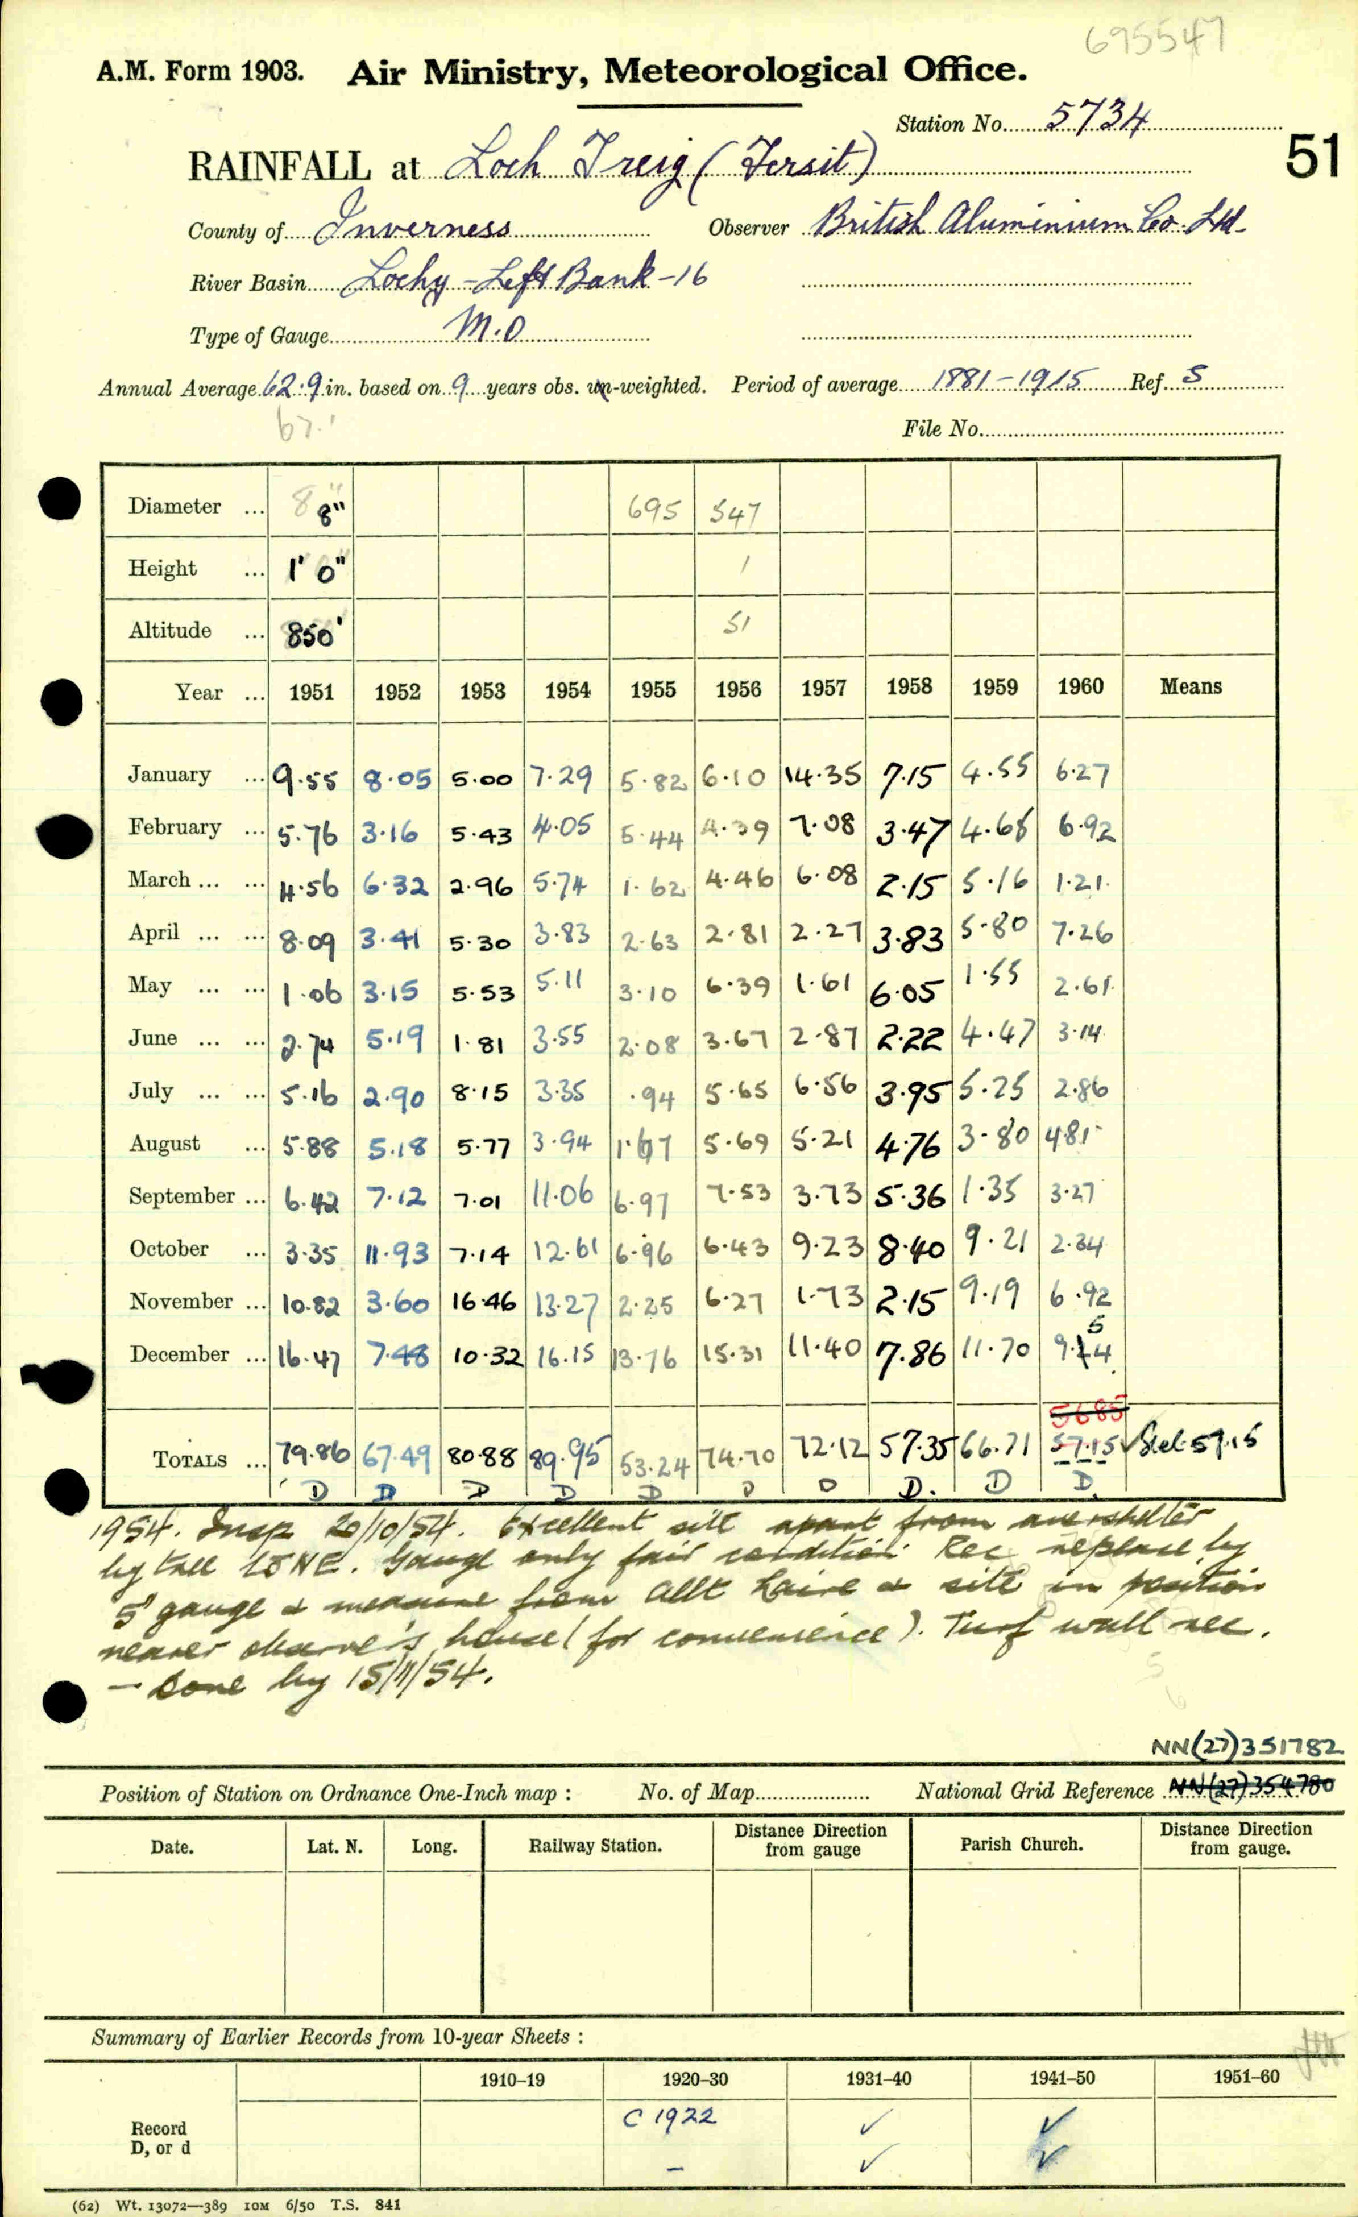 695547
A.M. Form 1903. Air Ministry, Meteorological Office.
Station No. 5734
51
RAINFALL at Loch Treig (Fersit)
County of Inverness Observer British Aluminium Co. Ltd.
River Basin Lochy - Left Bank - 16
Type of Gauge M.O
Annual Average 62.9 in. based on 9 years obs. un-weighted. Period of average 1881-1915 Ref. S
67.1
File No.
Diameter ... 8" 8" 695 547
Height ... 1' 0" 1
Altitude ... 850' 51
Year ... 1951 1952 1953 1954 1955 1956 1957 1958 1959 1960 Means
January ... 9.55 8.05 5.00 7.29 5.82 6.10 14.35 7.15 4.55 6.27
February ... 5.76 3.16 5.43 4.05 5.44 4.39 7.08 3.47 4.68 6.92
March ... ... 4.56 6.32 2.96 5.74 1.62 4.46 6.08 2.15 5.16 1.21
April ... ... 8.09 3.41 5.30 3.83 2.63 2.81 2.27 3.83 5.80 7.26
May ... ... 1.06 3.15 5.53 5.11 3.10 6.39 1.61 6.05 1.55 2.61
June ... ... 2.74 5.19 1.81 3.55 2.08 3.67 2.87 2.22 4.47 3.14
July ... ... 5.16 2.90 8.15 3.35 .94 5.65 6.56 3.95 5.25 2.86
August ... 5.88 5.18 5.77 3.94 1.67 5.69 5.21 4.76 3.80 4.81
September ... 6.42 7.12 7.01 11.06 6.97 7.53 3.73 5.36 1.35 3.27
October ... 3.35 11.93 7.14 12.61 6.96 6.43 9.23 8.40 9.21 2.34
November ... 10.82 3.60 16.46 13.27 2.25 6.27 1.73 2.15 9.19 6.92
December ... 16.47 7.48 10.32 16.15 13.76 15.31 11.40 7.86 11.70 9.54
5685
TOTALS ... 79.86 67.49 80.88 89.95 53.24 74.70 72.12 57.35 66.71 57.15 ✓ Stet 57.15
D D D D D D D D. D D.
1954. Insp 20/10/54. Excellent site apart from overshelter
by tall to NE. Gauge only fair condition. Rec replace by
5" gauge & measure from Allt Laire & site in position
nearer observer's house (for convenience). Turf wall rec.
- Done by 15/11/54.
NN(27)351782
Position of Station on Ordnance One-Inch map : No. of Map National Grid Reference NN(27)354780
Date. Lat. N. Long. Railway Station. Distance Direction from gauge Parish Church. Distance Direction from gauge.
Summary of Earlier Records from 10-year Sheets :
1910–19 1920–30 1931–40 1941–50 1951–60
Record C 1922 ✓ ✓
D, or d – ✓ ✓
(62) Wt. 13072—389 10M 6/50 T.S. 841